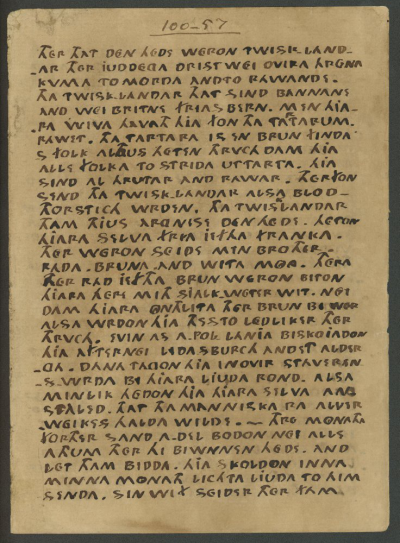 100-57
THER THAT DEN HEDE WERON TWISK.LAND-
AR THER JUDDEGA DRIST WEI OVIRA HRGNA
KVMA TO MORDA AND TO RAWANDE.
THA TWISK.LANDAR THAT SIND BANNANE
AND WEI BRITNE FRIAS BERN. MEN HIA-
RA WIVA HAVATH HIA FON THA TATARUM.
RAWET. THA TARTARA IS EN BRUN FINDA
S FOLK ALTHUS HETEN THRVCH DAM HIA
ALLE FOLKA TO STRIDA UTTARTA. HIA
SIND AL HRUTAR AND RAWAR. THERFON
SEND THA TWISK.LANDAR ALSA BLOD-
THORSTICH WRDEN. THA TWISLANDAR
THAM THIUS ARGNISE DEN HEDE. HETON
HIARA SELVA FRIA IEFTHA FRANKA.
THER WERON SEIDE MIN BROTHER.
RADA. BRUNA. AND WITA MONG. THERA
THER RAD IEFTHA BRUN WERON BITON
HIARA HERE MITH SIALK.WETER WIT. NEI
DAM HIARA ONTHLITA THER BRUN BI WER
ALSA WRDON HIA THESTO LEDLIKER THER
THRVCH. EVIN AS A.POL LANIA BISKOIADON
HIA AFTERNEI LIDASBURCH AND ET ALDER
GA. DANA TAGON HIA INOVIR STAVEREN.
S. WRDA BI HIARA LIUDA ROND. ALSA
MINLIK HEDON HIA HIARA SELVA AN
STALED. THAT THA MANNISKA RA ALLER
WEIKES HALDA WILDE. ~ THRE MONATHA
FORTHER SAND A.DEL BODON NEI ALLE
ATHUM THER HI BIWNNEN HEDE. AND
LET THAM BIDDA. HIA SKOLDON INNA
MINNA MONATH LICHTA LIUDA TO HIM
SENDA. SIN WIF SEIDE THER FAM